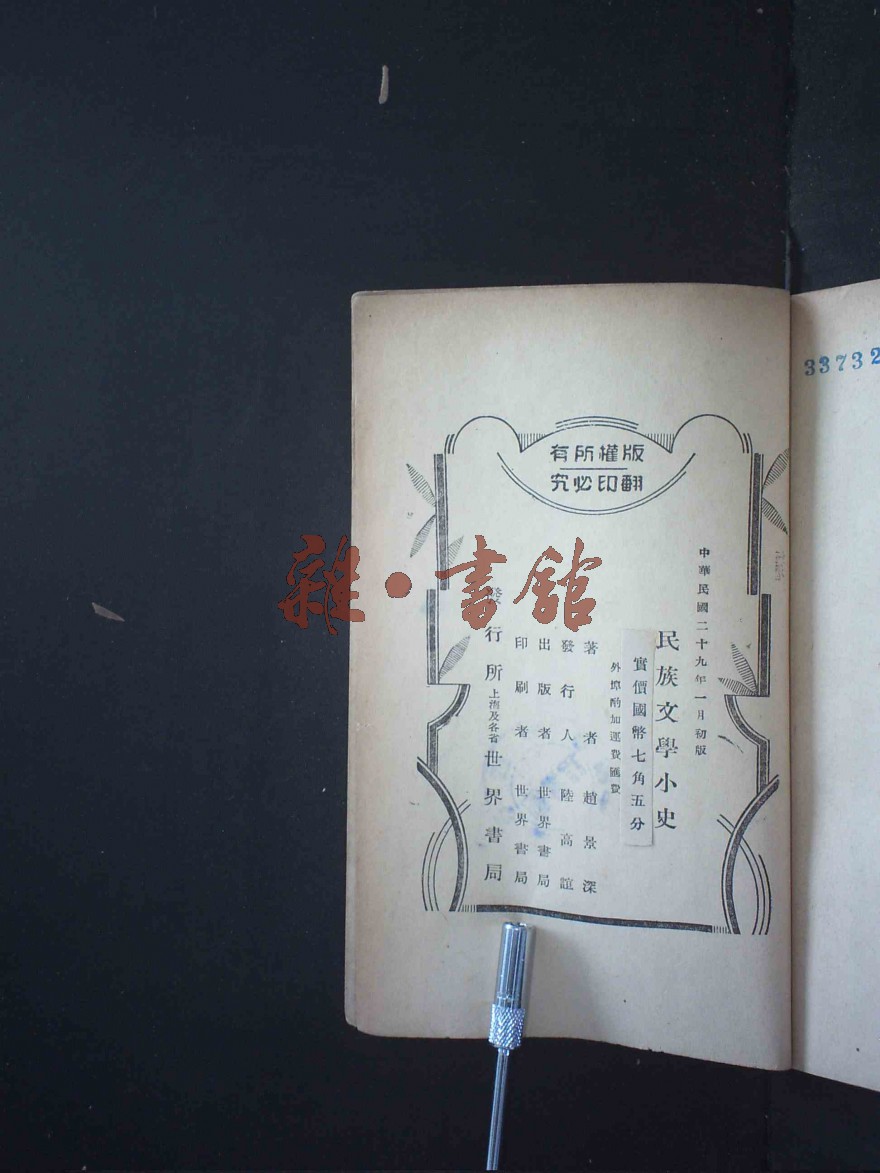 版權所有
翻印必究
中華民國二十九年一月初版
民族文學小史
實價國幣七角五分
外埠酌加運費匯費
著者 趙景深
發行人 陸高誼
出版者 世界書局
印刷者 世界書局
發行所 上海及各省 世界書局
雜·書館
33732